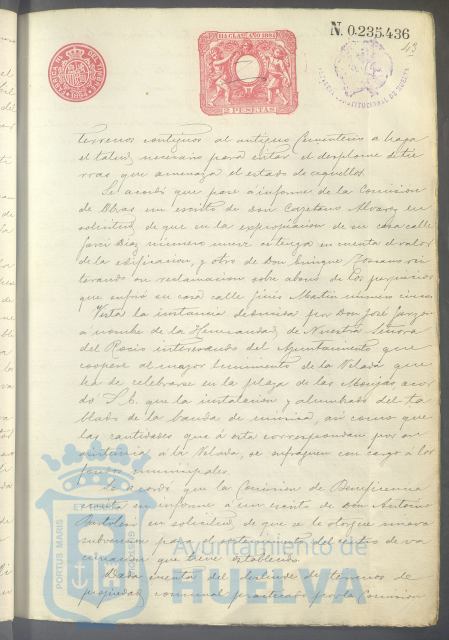 N. 0.235.436
43
11ª CLASE AÑO 1884
2 PESETAS
terrenos contiguos al antiguo Cementerio se haga
el talud necesario para evitar el desplome de tie-
rras que amenaza el estado de aquellos.
Se acordó que pase a informe de la Comision
de Obras un escrito de Don Cayetano Alvarez en
solicitud de que en la expropiacion de su casa calle
Garci Diaz número nueve se tenga en cuenta el valor
de la edificacion, y otro de Don Enrique rei-
terando su reclamacion sobre abono de los perjuicios
que sufrió su casa calle Ginés Martin número cinco.
Vista la instancia deducida por Don José
a nombre de la Hermandad de Nuestra Señora
del Rocio interesando del Ayuntamiento que
coopere al mayor lucimiento de la Velada que
ha de celebrarse en la plaza de las Monjas acor-
dó S.E. que la instalacion y alumbrado del ta-
blado de la banda de música, así como que
las cantidades que á esta correspondan por su
asistencia á la Velada, se sufraguen con cargo á los
fondos municipales.
Se acordó que la Comision de Beneficencia
emita su informe á un escrito de Don Antonio
en solicitud de que se le otorgue nueva
subvencion para el sostenimiento del centro de va-
cunacion que tiene establecido.
Dada cuenta del deslinde de terrenos de
propiedad comunal practicado por la Comision
PORTUS MARIS
Ayuntamiento de
HUELVA